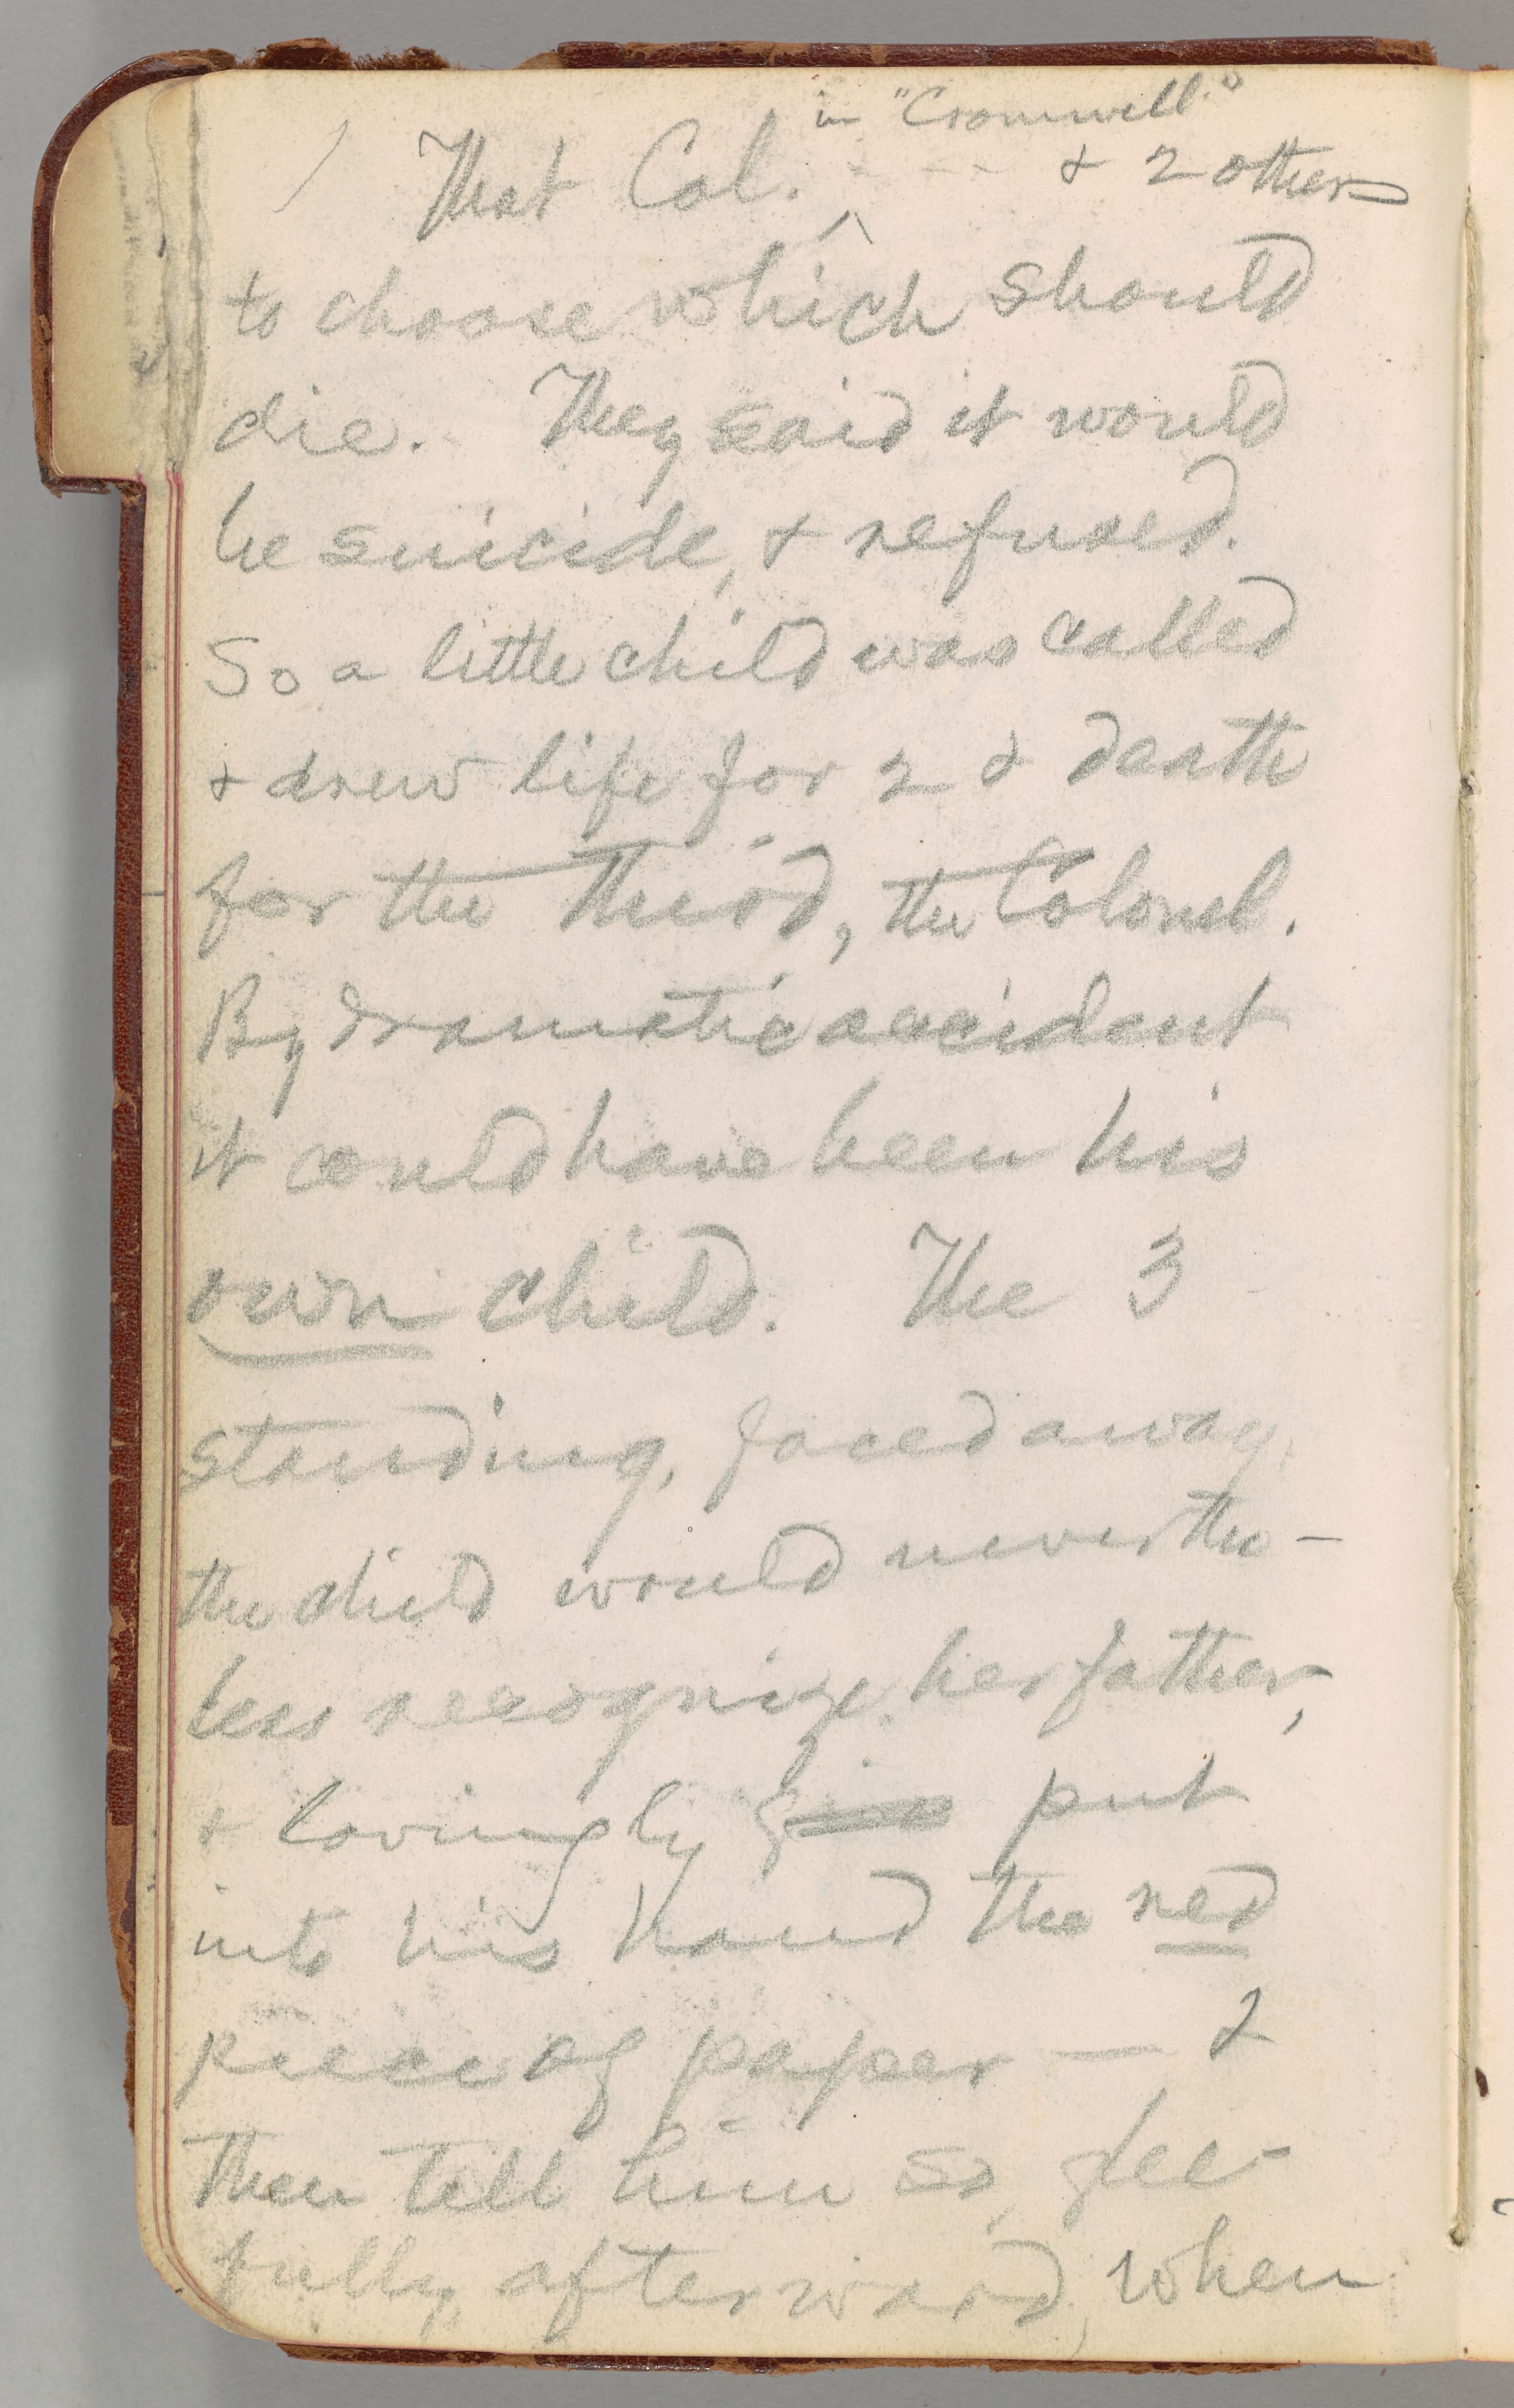 in "Cromwell."
That Col. - - - & 2 others
to choose which should
die. They said it would
be suicide, & refused.
So a little child was called
& drew life for 2 & death
for the third, the Colonel.
By dramatic accident
it could have been his
own child. The 3
standing, faced away,
the child would neverthe-
less recognize her father,
& lovingly give put
into his hand the red
piece of paper — &
then tell him so, glee-
fully, afterward, when